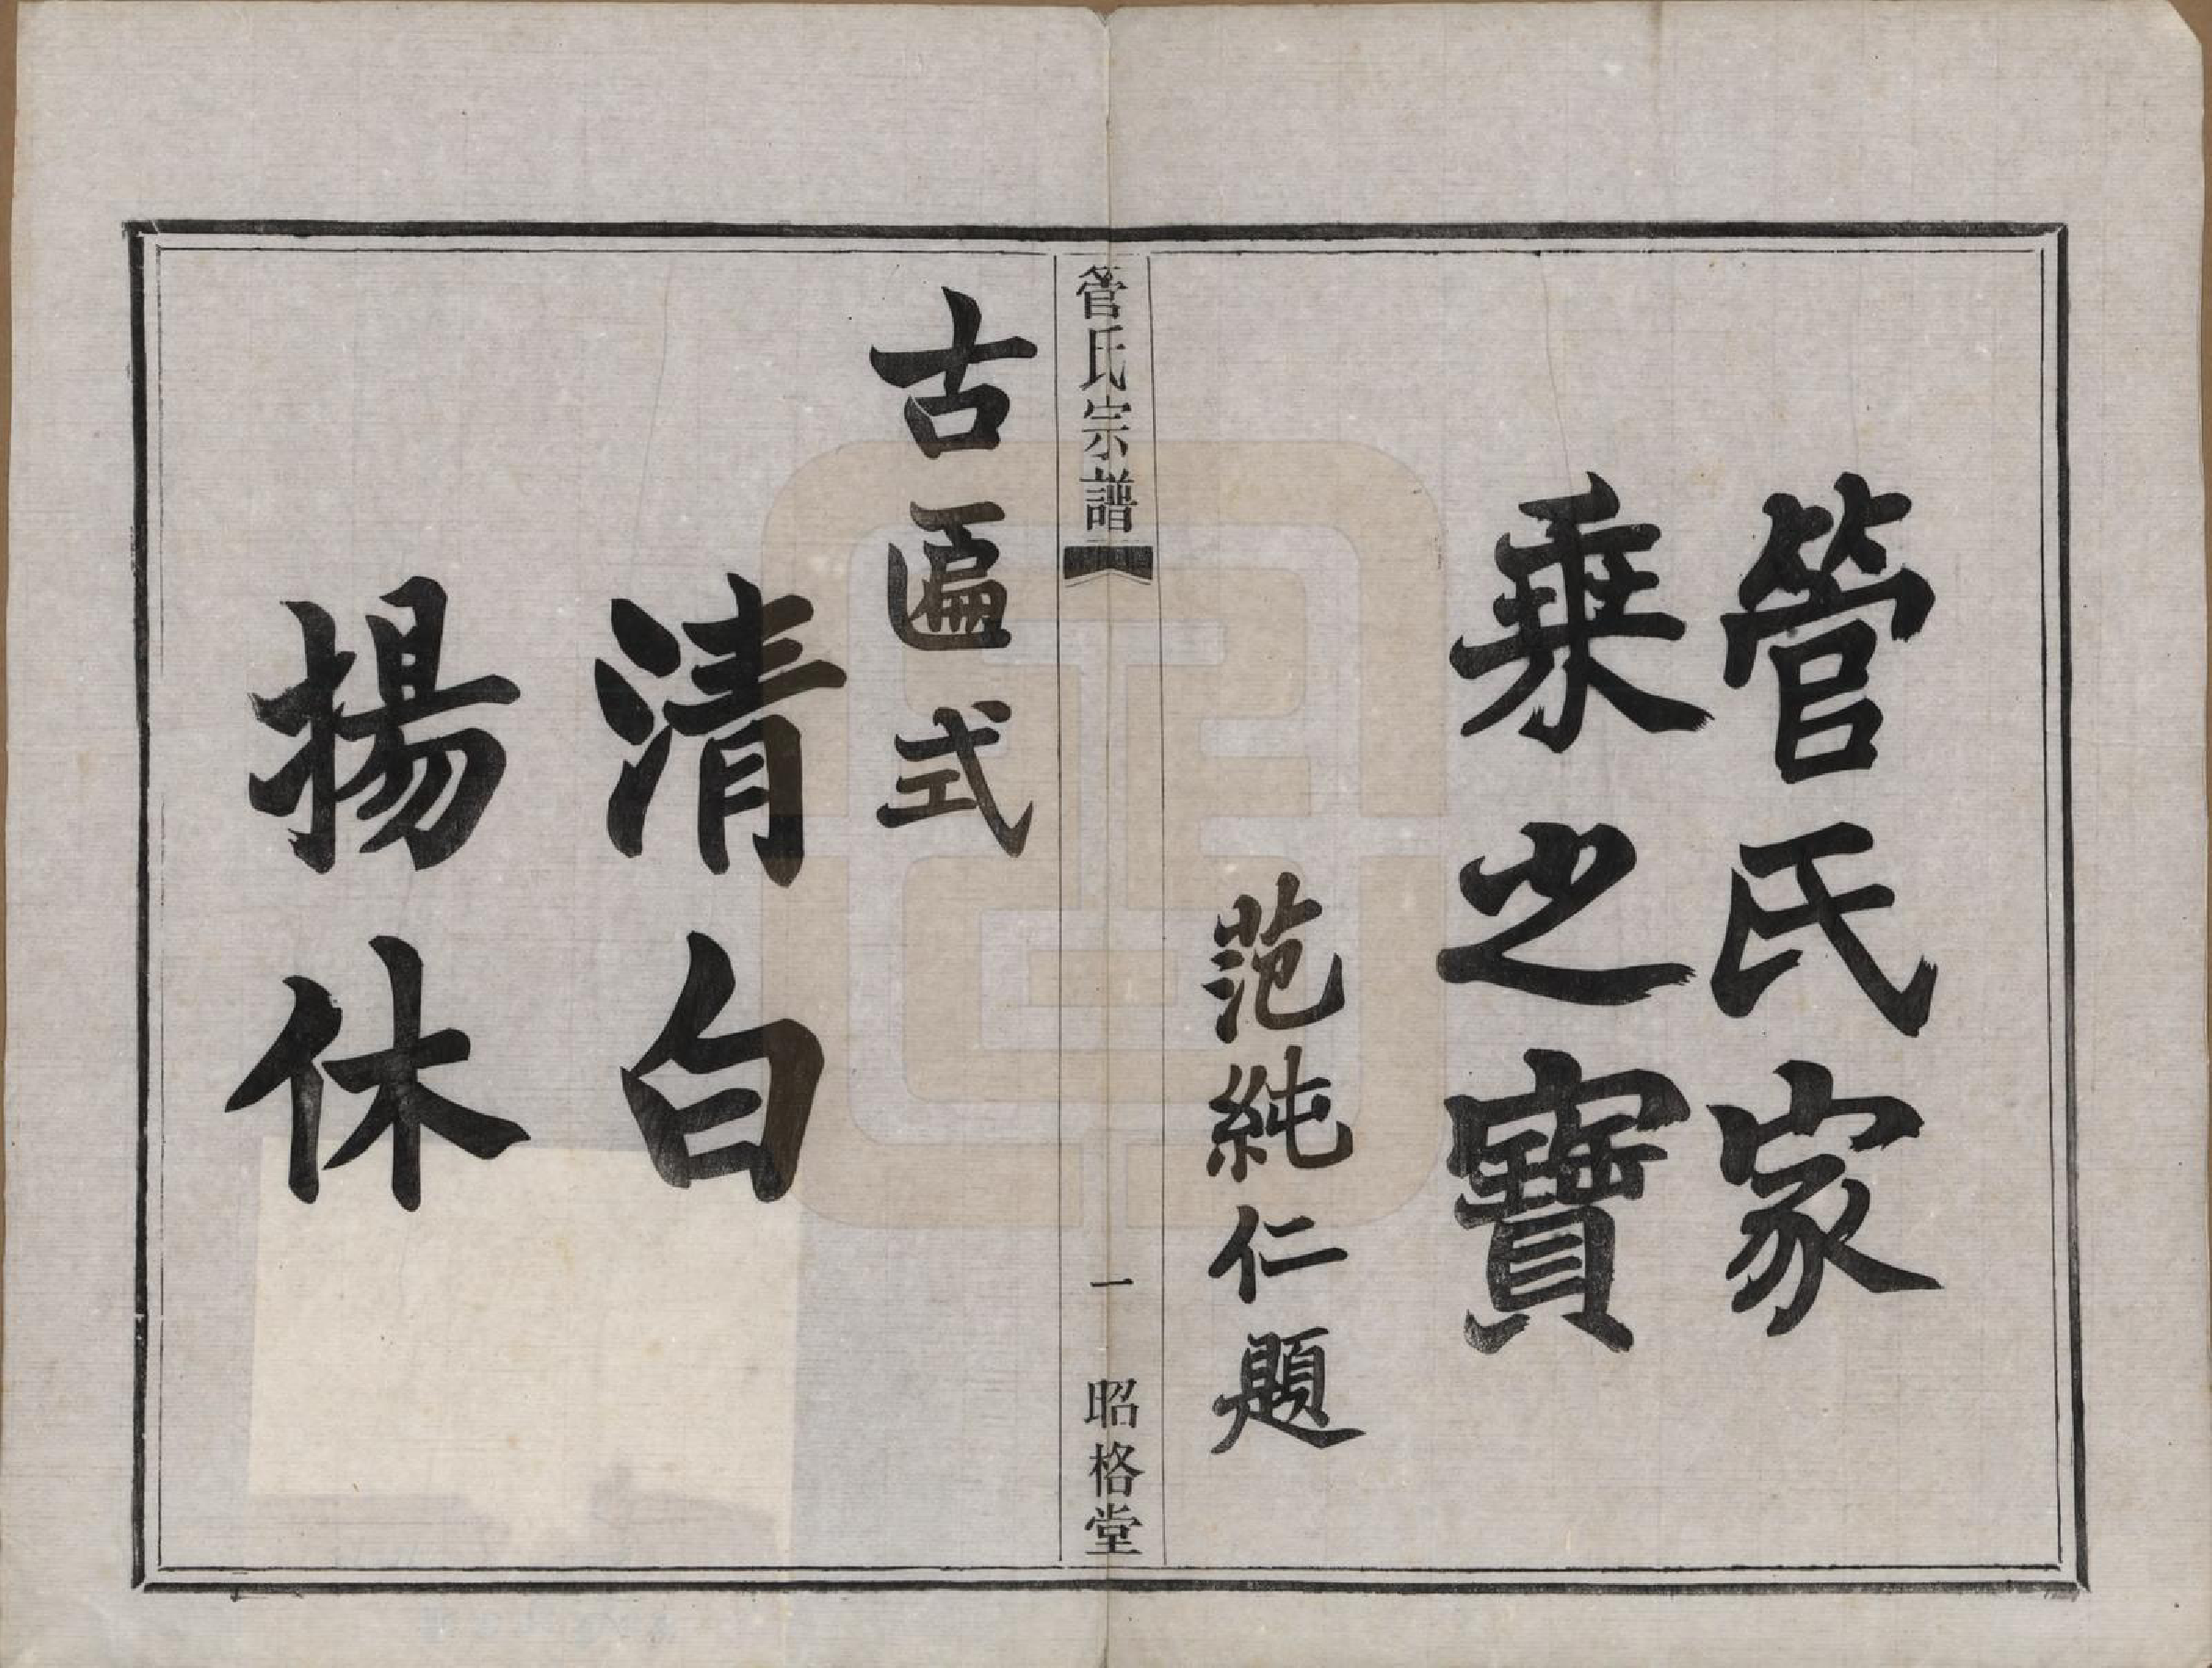 管氏家
乘之寶
范純仁題
管氏宗譜
一
昭格堂
古匾式
清白
揚休